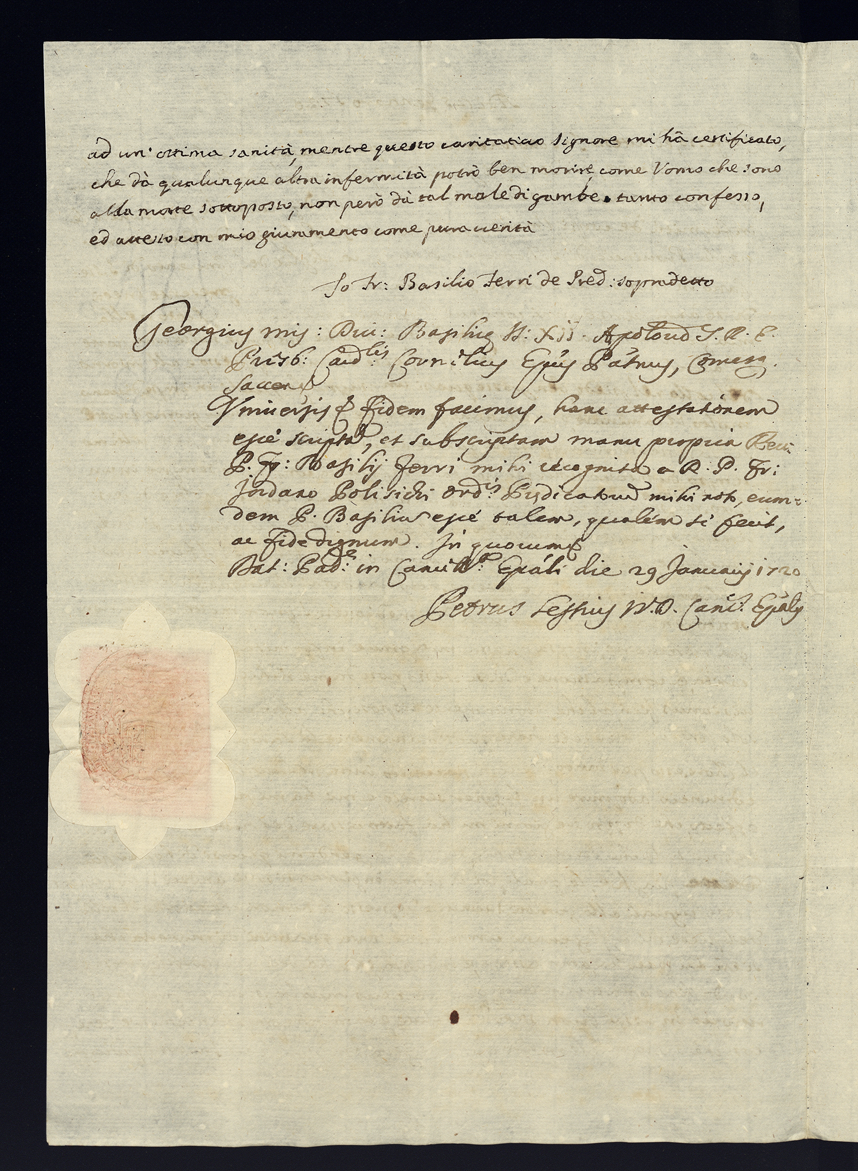 ad un' ottima sanità, mentre questo caritativo Signore mi hà certificato,
che dà qualunque altra infermità potrò ben morire, come Vomo che sono
alla morte sottoposto, non però dà tal male di gambe. tanto confesso,
ed attesto con mio giuramento come pura verità
Io Fr: Basilio Ferri de Pred: sopradetto
Georgius mis: Div: Basilicę SS: XII. Apolorũ S. R. E.
Prãsb: Card:lis Cornelius Epũs Patnus, Comesq.
Saccen
Vniversis fidem facimus, hanc attestationem
esse scriptã, et subscriptam manu propria
P. Fr: Basilij Ferri mihi recognita a R. P. Fr:
Jordano Ord:is Prędicatorũ mihi not, eun-
dem P. Basiliũ esse talem, qualem se fecit,
ac fide dignum. In quorum
Dat: Pad:ę in Canc. Epáli die 29 Januarij 1720
Petrus Canc. Epális